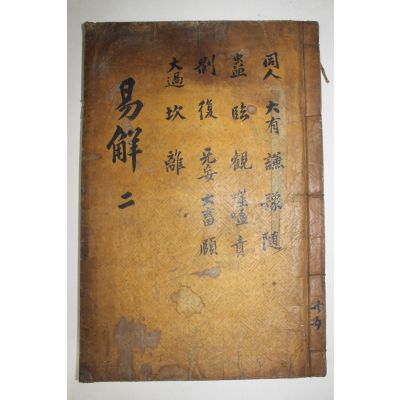 同人 大有 謙 豫 隨
蠱 臨 觀 噬嗑 賁
剝 復 无妄 大畜 頤
大過 坎 離
易解 二